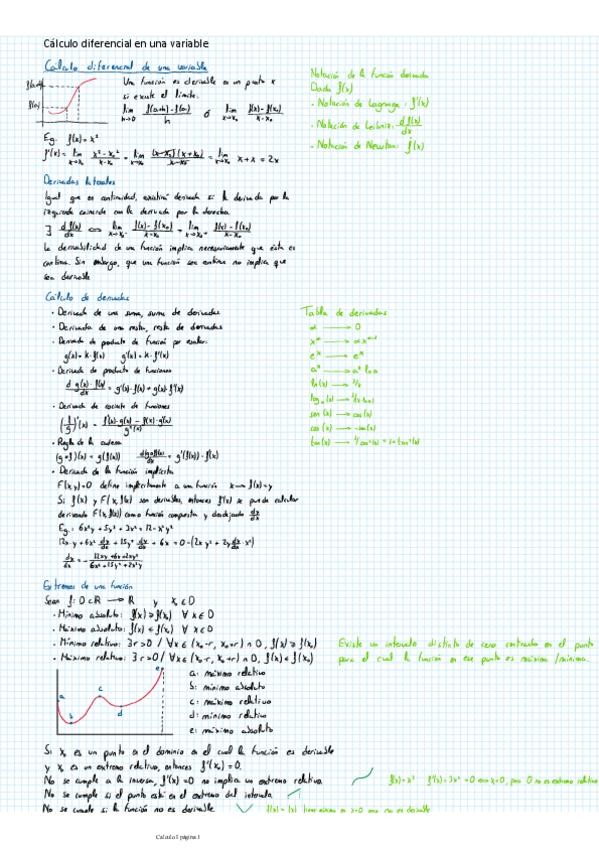 Cálculo diferencial en una variable
Cálculo diferencial de una variable
Una función es derivable en un punto x
si existe el límite:
lim h→0 f(a+h)-f(a)/h ó lim x→x₀ f(x)-f(x₀)/x-x₀
Eg. f(x)=x²
f'(x)= lim x→x₀ x²-x₀²/x-x₀ = lim x→x₀ (x-x₀)(x+x₀)/x-x₀ = lim x→x₀ x+x = 2x
Notación de la función derivada
Dada f(x)
- Notación de Lagrange: f'(x)
- Notación de Leibniz: df(x)/dx
- Notación de Newton: ḟ(x)
Derivadas laterales
Igual que en continuidad, existirá derivada si la derivada por la
izquierda coincide con la derivada por la derecha.
∃ df(x)/dx ⇔ lim x→x₀⁻ f(x)-f(x₀)/x-x₀ = lim x→x₀⁺ f(x)-f(x₀)/x-x₀
La derivabilidad de una función implica necesariamente que ésta es
continua. Sin embargo, que una función sea continua no implica que
sea derivable
Cálculo de derivadas
· Derivada de una suma, suma de derivadas
· Derivada de una resta, resta de derivadas
· Derivada de producto de función por escalar:
g(x)=k·f(x) g'(x)=k·f'(x)
· Derivada de producto de funciones
d g(x)·f(x)/dx = g'(x)·f(x)+g(x)·f'(x)
· Derivada de cociente de funciones
(f/g)'(x) = f'(x)·g(x)-f(x)·g'(x)/g²(x)
· Regla de la cadena
(g∘f)(x)=g(f(x)) dg∘f(x)/dx = g'(f(x))·f'(x)
· Derivada de la función implícita
F(x,y)=0 define implícitamente a una función x→f(x)=y
Si f(x) y F(x,f(x)) son derivables, entonces f'(x) se puede calcular
derivando F(x,f(x)) como función compuesta y despejando dy/dx
Eg.: 6x²y+5y³+3x²=12-x²y²
12x·y+6x² dy/dx + 15y² dy/dx + 6x = 0-(2x y²+2y dy/dx·x²)
dy/dx = - 12xy+6x+2xy²/6x²+15y²+2x²y
Tabla de derivadas
α → 0
xᵅ → αxᵅ⁻¹
eˣ → eˣ
aˣ → aˣ ln a
ln(x) → 1/x
sen(x) → cos(x)
cos(x) → -sen(x)
tan(x) → 1/cos²(x) = 1+tan²(x)
Extremos de una función
Sean f: D⊂R → R y x₀∈D
· Mínimo absoluto: f(x)≥f(x₀) ∀ x∈D
· Máximo absoluto: f(x)≤f(x₀) ∀ x∈D
· Mínimo relativo: ∃r>0 / ∀x∈(x₀-r, x₀+r)∩D, f(x)≥f(x₀)
· Máximo relativo: ∃r>0 / ∀x∈(x₀-r, x₀+r)∩D, f(x)≤f(x₀)
Existe un intervalo distinto de cero centrado en el punto
para el cual la función en ese punto es máxima/mínima.
a b c d e
a: máximo relativo
b: mínimo absoluto
c: máximo relativo
d: mínimo relativo
e: máximo absoluto
Si x₀ es un punto en el dominio en el cual la función es derivable
y x₀ es un extremo relativo, entonces f'(x₀)=0.
No se cumple a la inversa, f'(x)=0 no implica un extremo relativo.
f(x)=x³ f'(x)=3x²=0 en x=0, pero 0 no es extremo relativo
No se cumple si el punto está en el extremo del intervalo
No se cumple si la función no es derivable
Calculo I página 1